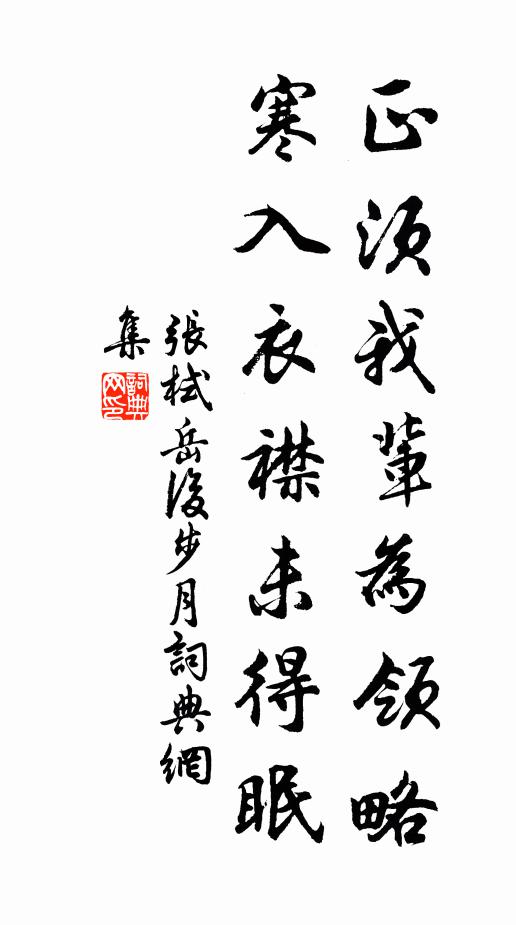 正須我輩為領略
寒入衣襟未得眠
張栻岳後步月詞典網
集
詞典
网印